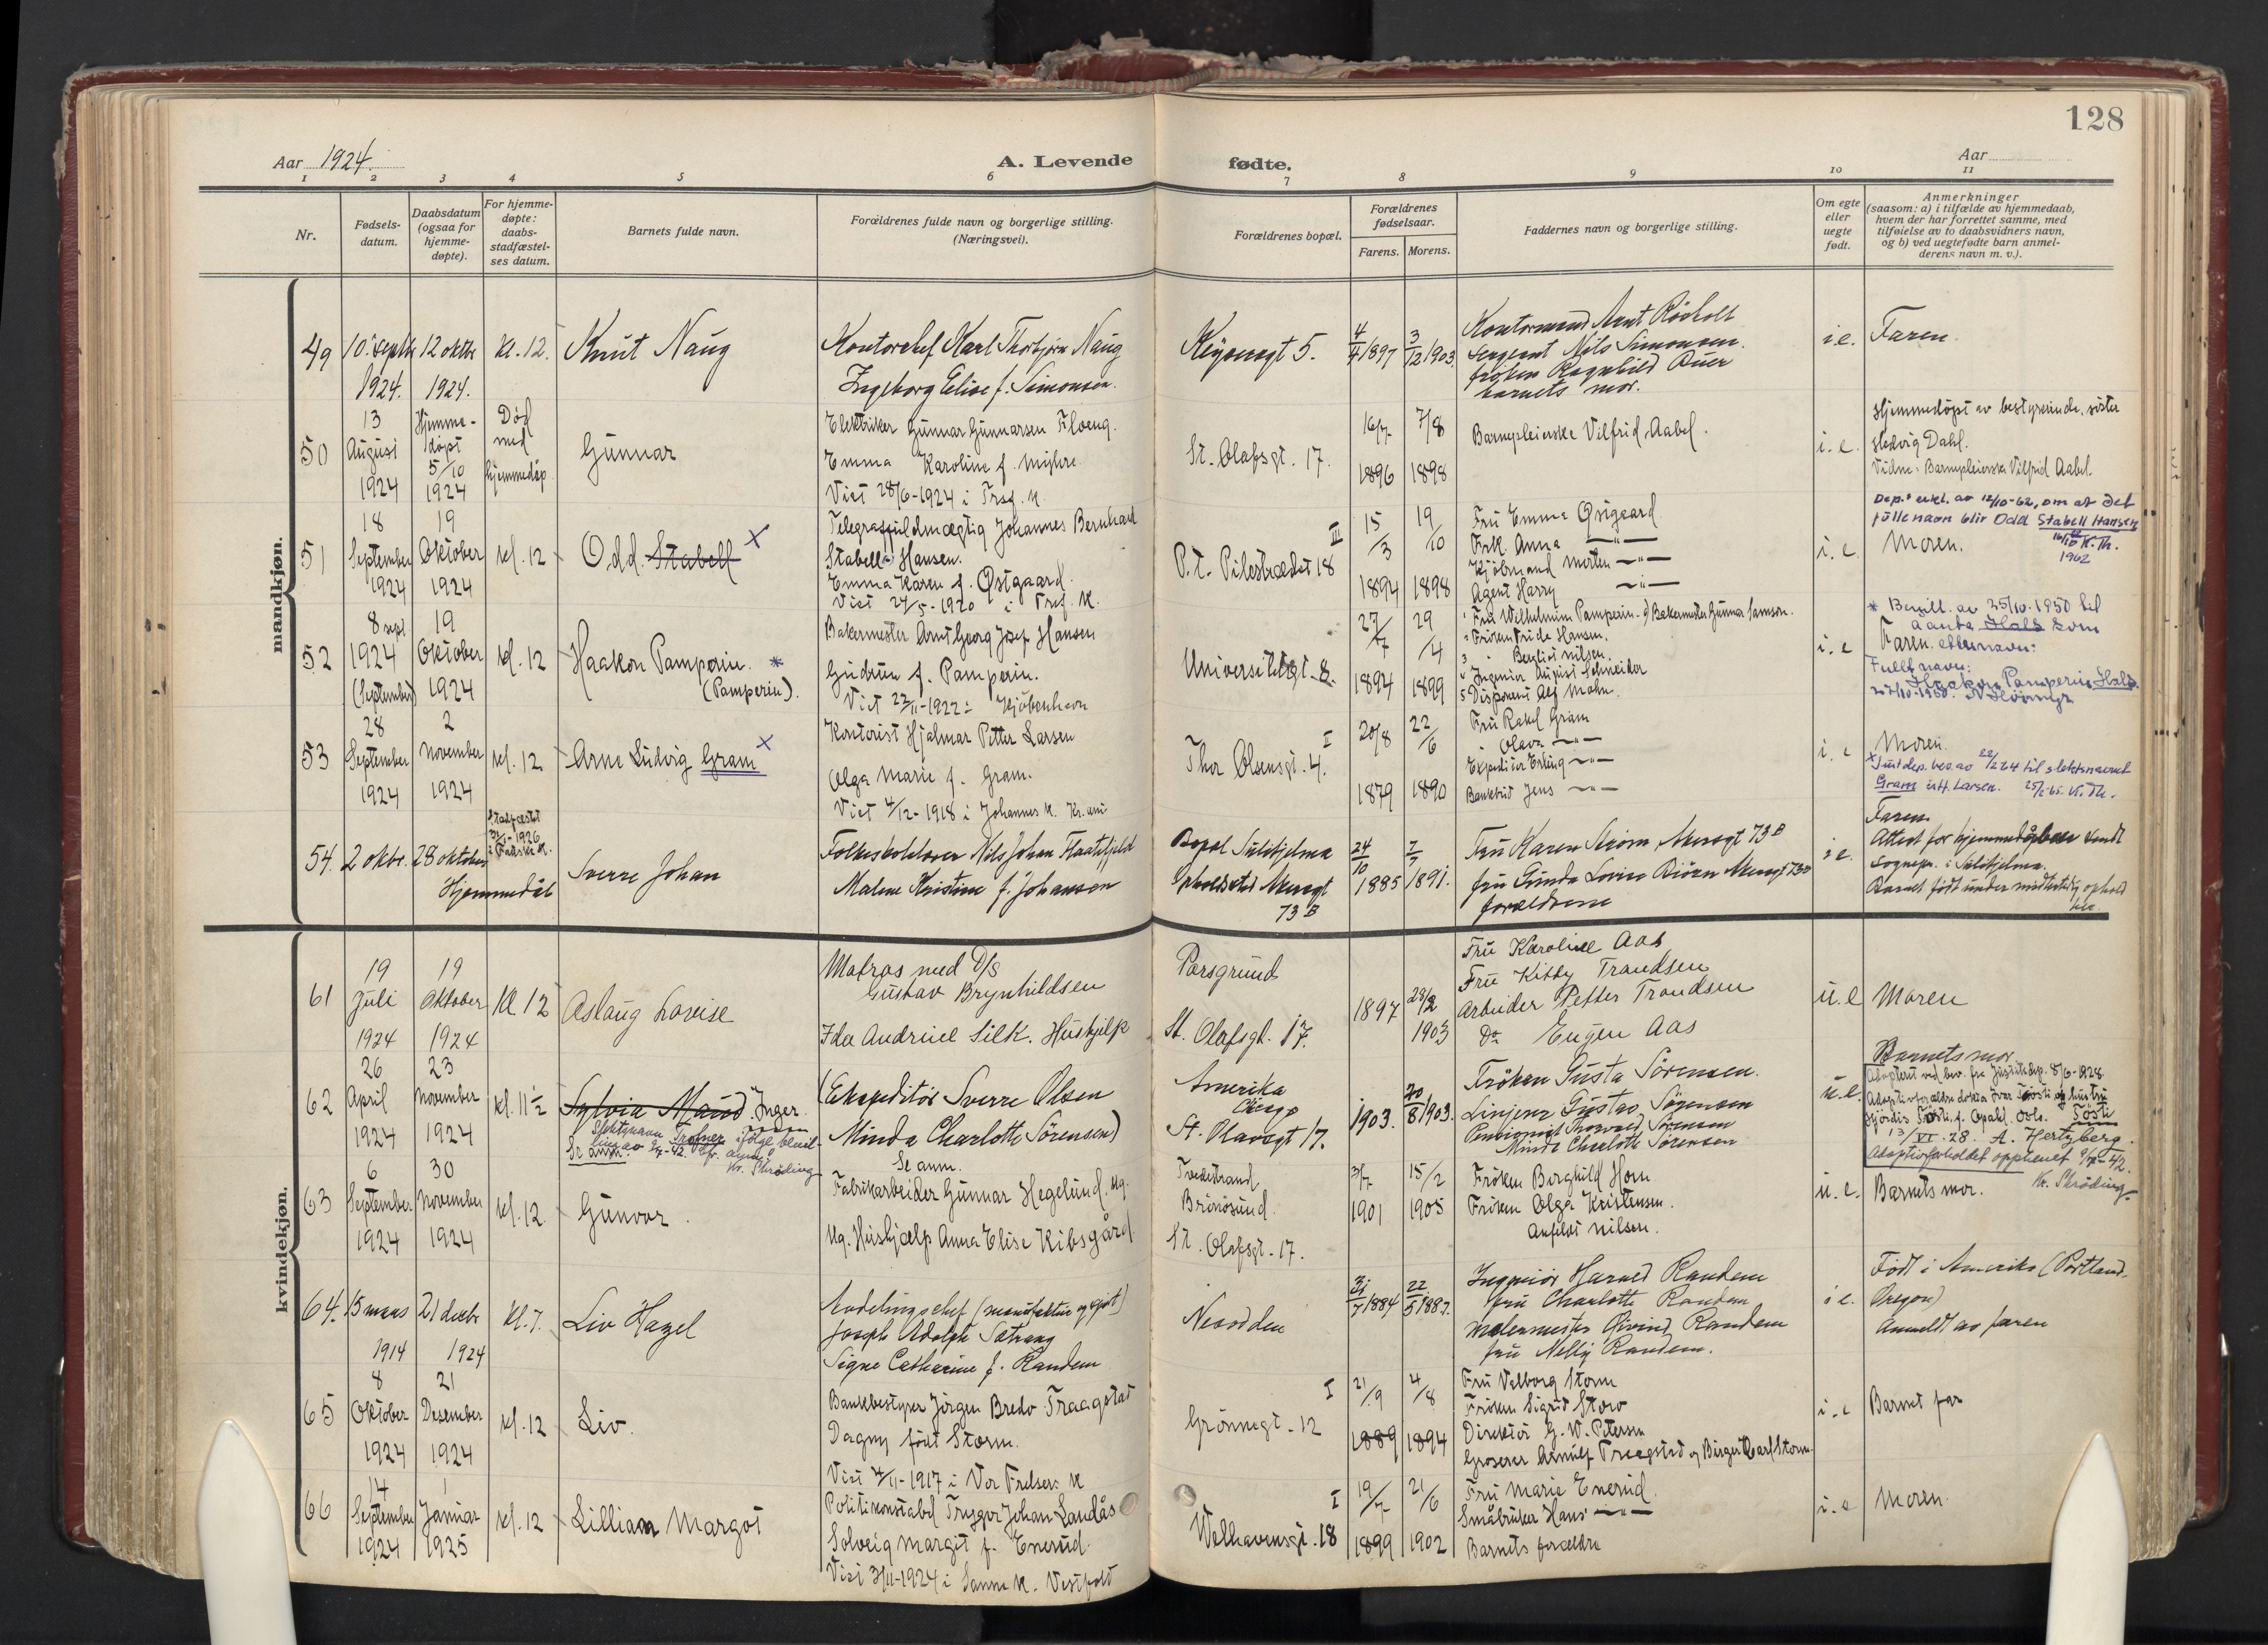 128
Aar 1924.
A. Levende fødte.
Aar
1 2 3 4 5 6 7 8 9 10 11
Nr.
Fødsels-
datum.
Daabsdatum
(ogsaa for
hjemme-
døpte).
For hjemme-
døpte:
daabs-
stadfæstel-
ses datum.
Barnets fulde navn.
Forældrenes fulde navn og borgerlige stilling.
(Næringsvei).
Forældrenes bopæl.
Forældrenes
fødselsaar.
Farens. Morens.
Faddernes navn og borgerlige stilling.
Om egte
eller
uegte
født.
Anmerkninger
(saasom: a) i tilfælde av hjemmedaab,
hvem der har forrettet samme, med
tilføielse av to daabsvidners navn,
og b) ved uegtefødte barn anmel-
derens navn m. v.).
mandkjøn.
49
10. septb
1924.
12 oktbr
1924.
kl. 12.
Knut Naug
Kontorchef Karl Thorbjørn Naug
Ingeborg Elise f. Simonsen.
Keysersgt 5.
4/4 1897
3/12 1903.
Kontormand Arnt Rösholt
Sergeant Nils Simonsen.
frøken Ragnhild Duer
barnets mor.
i.e.
Faren
50
13
August
1924
Hjemme-
døpt
5/10
1924
Død
med
hjemmedåp
Gunnar
Elektriker Gunnar Gunnarsen Floeng.
Emma Karoline f. Myhre.
Viet 28/6-1924 i Tref. K.
St. Olafsgt. 17.
16/7
1896
7/8
1898
Barnepleierske Vilfrid Aabel.
i. e.
Hjemmedøpt av bestyrerinde, søster
Hedvig Dahl.
Vidne: Barnepleierske Vilfrid Aabel.
51
18
September
1924
19
Oktober
1924
kl. 12
Odd. Stabell x
Telegraffuldmægtig Johannes Bernhard
Stabell Hansen.
Emma Karen f. Østgaard.
Viet 24/5-1920 i Tref. K.
III
P.t. Pilestrædet 18
15/3
1894
19/10
1898
Fru Emma Østgaard
Frk. Anna —"—
Kjøbmand Morten —"—
Agent Harry —"—
i. e.
Dep.s erkl. av 12/10-62, om at det
fulle navn blir Odd Stabell Hansen
Moren.
16/10 K.Th.
1962
52
8 sept
1924
(September)
19
Oktober
1924
kl. 12
Haakon Pamperin. *
(Pamperin).
Bakermester Arnt Georg Josef Hansen
Gudrun f. Pamperin.
Viet 22/11-1922 i Kjøbenhavn
Universitetsgt. 8.
27/7
1894
29/4
1899
1 Fru Wilhelmine Pamperin. 6) Bakermester Gunnar Samson.
2 Frøken Frida Hansen.
3 " Bergliot Nilsen.
4 Ingeniør August Schneider
5 Disponent Alf Mohn.
i. e
* Bevill. av 25/10-1950 til
å anta Hals som
Faren. etternavn:
Fullt navn:
Haakon Pamperin Hals.
27/10-1950.
53
28
September
1924
2
November
1924
kl. 12
Arne Ludvig Gram x
Kontorist Hjalmar Petter Larsen
Olga Marie f. Gram.
Viet 4/12-1918 i Johannes K. Kr.ania
I
Thor Olsensgt. 4.
20/8
1879
22/6
1890
Fru Rakel Gram
" Olava —"—
Expeditør Erling —"—
Bankbud Jens —"—
i. e
Moren.
x Just.dep. bev. av 22/2 24 til slektsnavnet
Gram istf. Larsen. K.Th.
54.
2 oktbr.
28 oktober
Hjemmedåb
Stadfæstet
31/1-1926
i Fauske K.
Sverre Johan
Folkeskolelærer Nils Johan Flaatefjeld
Malene Kristine f. Johanson
Bopæl Sulitjelma
Opholdssted Akersgt
73 B
24/10
1885
7/7
1891.
Fru Karen Strøm Akersgt 73 B
fru Gunda Lovise Biörn Akersgt 73 B
forældrene
i e.
Faren
Attest for hjemmedåben sendt
Sognepr. i Sulitjelma.
Barnet født under midlertidig ophold
her.
kvindekjøn.
61
19
Juli
1924
19
Oktober
1924
Kl 12
Aslaug Lovise
Matros med D/S
Gustav Brynhildsen
Ida Andrine Silk. Hushjelp
Porsgrund
St. Olafsgt. 17.
1897
28/2
1903
Fru Karoline Aas
Fru Kitty Trondsen
Arbeider Petter Trondsen
Do Eugen Aas
u. e
Moren
62
26
April
1924
23
November
1924
kl. 11½
Sylvia Maud. Inger
Se anm.
(Ekspeditör Sverre Olsen
Minda Charlotte Sörensen)
Se anm.
Amerika
St. Olavsgt 17.
1903.
20/8 1903.
Fröken Gusta Sörensen.
Linjeur Gustav Sörensen
Pensionist Thorvald Sörensen
Minda Charlotte Sörensen
u. e.
Barnets mor
Adoptert ved bev. fra Justitsdep. 8/6-1928.
Hjördis Tösti f. Opahl, Oslo. Tösti
13/VI. 28. A. Hertzberg.
Adoptivforholdet opphevet 9/7-42.
Kr. Skröding
63
6
September
1924
30
November
1924
kl. 12.
Gunvor.
Fabrikarbeider Gunnar Hegelund. Ug.
Ug. Hushjælp Anna Elise Kibsgård
Tvedestrand
Brönösund.
St. Olafsgt. 17.
3/7
1901
15/2
1905
Fröken Borghild Horn
Fröken Olga Kristensen.
Anfeldt Nilsen.
u. e.
Barnets mor.
64.
15 mars
1914
21 decbr
1924
Kl. 7.
Liv Hazel
Avdelingschef (manufaktur og gjøt)
Joseph Adolph Sætrang
Signe Catharine f. Randem
Nesodden
31/7 1884
22/5 1887.
Ingeniör Harald Randem
fru Charlotte Randem
Malermester Øivind Randem
fru Nelly Randem.
i e.
Født i Amerika (Portland-
Oregon)
Anmeldt av faren
65
8
Oktober
1924
21
Desember
1924
kl. 12
Liv.
Bankbestyrer Jörgen Bredo Fraagstad
Dagny født Storm.
Viet 4/11-1917 i Vor Frelsers K
I
Grönnegt. 12
21/9
1889
4/8
1894
Fru Valborg Storm
Fröken Sigrid Storm
Direktör G. W. Petersen
Grosserer Arnulf Fraagstad og Birger Carl Storm.
i. e
Barnet far
66
14
September
1924
1
Januar
1925
kl. 12
Lillian Margot
Politikonstabel Trygve Johan Landås
Solveig Margit f. Enerud.
Viet 3/11-1924 i Sanne K. Vestfold
I
Welhavensgt. 18
19/7
1899
21/6
1902
Fru Marie Enerud.
Småbruker Hans —"—
Barnets forældre
i. e
Moren.